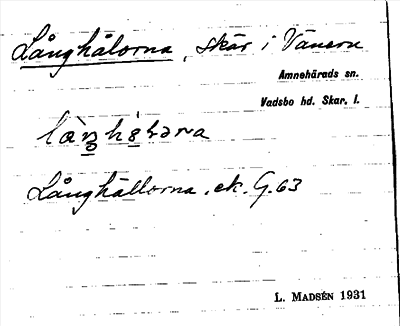 Långhälorna, skär i Vänern
Amnehärads sn.
Vadsbo hd. Skar. l.
Långhällorna. ek. G.63
L. MADSÉN 1931